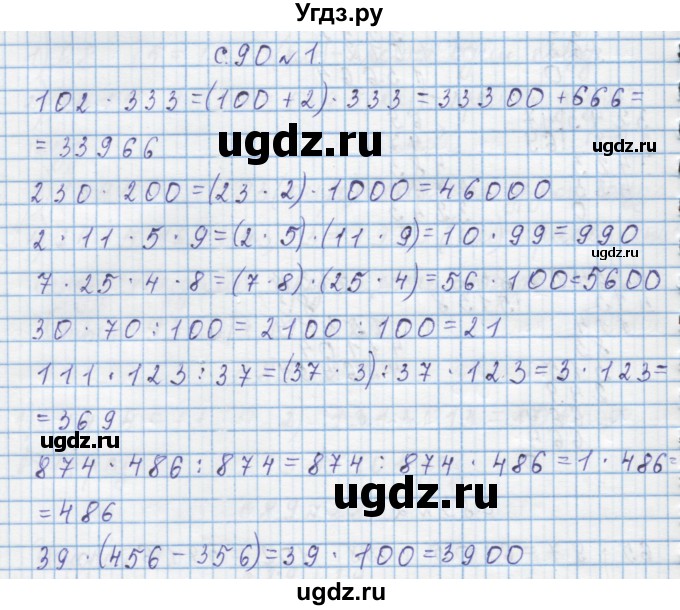 Угдз.ру
с.90 №1.
102 · 333 = (100 + 2) · 333 = 33300 + 666 =
= 33966
ugdz.ru
230 · 200 = (23 · 2) · 1000 = 46000
2 · 11 · 5 · 9 = (2 · 5) · (11 · 9) = 10 · 99 = 990
ugdz.ru
7 · 25 · 4 · 8 = (7 · 8) · (25 · 4) = 56 · 100 = 5600
30 · 70 : 100 = 2100 : 100 = 21
111 · 123 : 37 = (37 · 3) : 37 · 123 = 3 · 123 =
= 369
ugdz.ru
874 · 486 : 874 = 874 : 874 · 486 = 1 · 486 =
ugdz.ru
= 486
39 · (456 - 356) = 39 · 100 = 3900
ugdz.ru